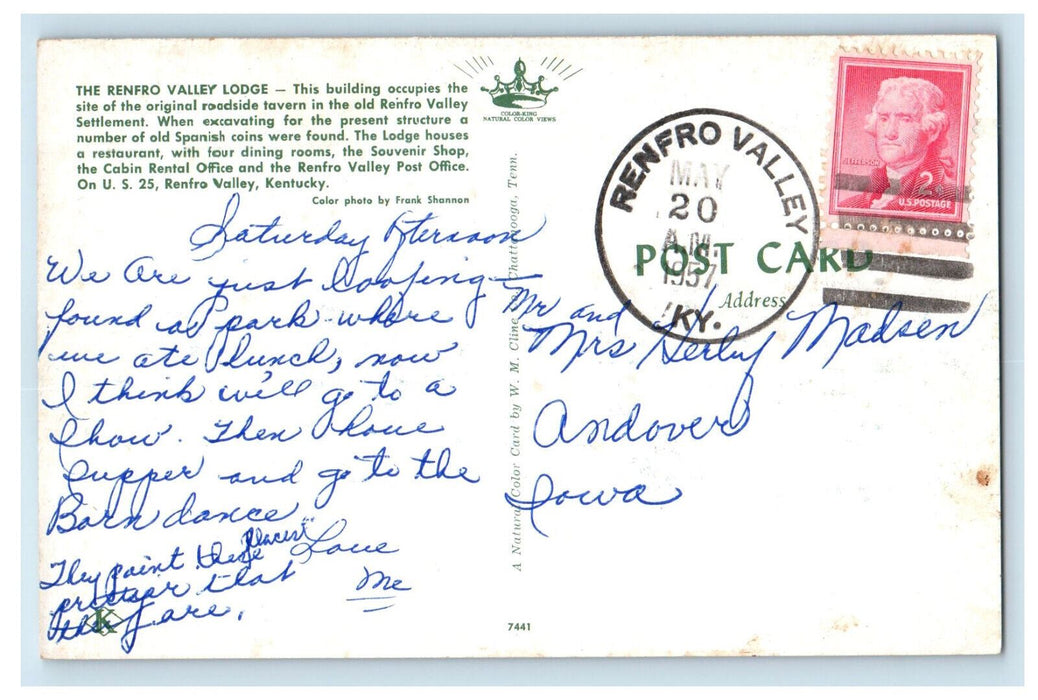 THE RENFRO VALLEY LODGE — This building occupies the
site of the original roadside tavern in the old Renfro Valley
Settlement. When excavating for the present structure a
number of old Spanish coins were found. The Lodge houses
a restaurant, with four dining rooms, the Souvenir Shop,
the Cabin Rental Office and the Renfro Valley Post Office.
On U. S. 25, Renfro Valley, Kentucky.
Color photo by Frank Shannon
COLOR-KING
NATURAL COLOR VIEWS
Saturday Afternoon
We Are just loafing—
found a park where
we ate lunch, now
I think we'll go to a
Show. Then have
supper and go to the
Barn dance
Love
Me
They paint these places
prettier that
they are.
K
A Natural Color Card by W. M. Cline Chattanooga, Tenn.
7441
RENFRO VALLEY
MAY
20
A.M.
1957
KY.
JEFFERSON
2¢
U.S. POSTAGE
POST CARD
Address
Mr and
Mrs Herby Madsen
Andover
Iowa